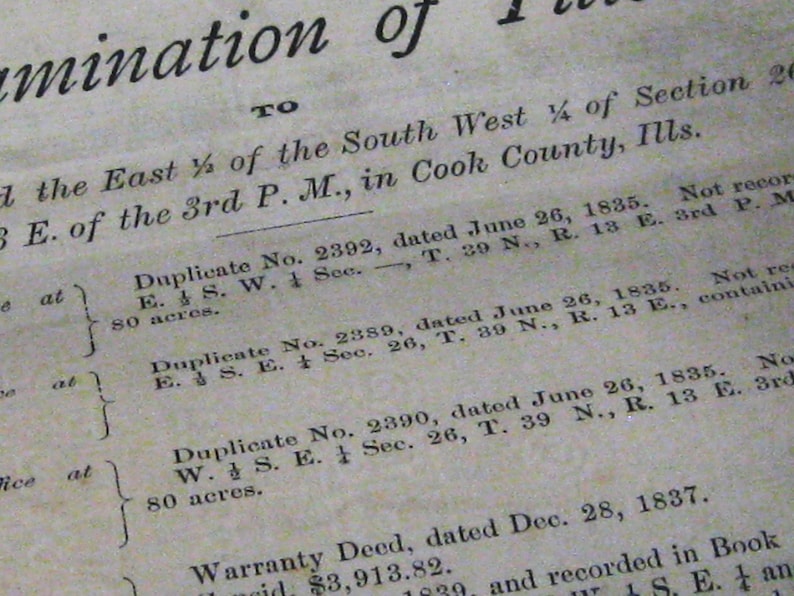 amination of
TO
the East ½ of the South West ¼ of Section 26
3 E. of the 3rd P. M., in Cook County, Ills.
at } Duplicate No. 2392, dated June 26, 1835. Not recor
E. ½ S. W. ¼ Sec. —, T. 39 N., R. 13 E. 3rd P. M
80 acres.
at } Duplicate No. 2389, dated June 26, 1835. Not re
E. ½ S. E. ¼ Sec. 26, T. 39 N., R. 13 E., containi
fice at } Duplicate No. 2390, dated June 26, 1835. No
W. ½ S. E. ¼ Sec. 26, T. 39 N., R. 13 E. 3rd
80 acres.
Warranty Deed, dated Dec. 28, 1837.
$3,913.82.
1839, and recorded in Book
¼ S. E. ¼ an